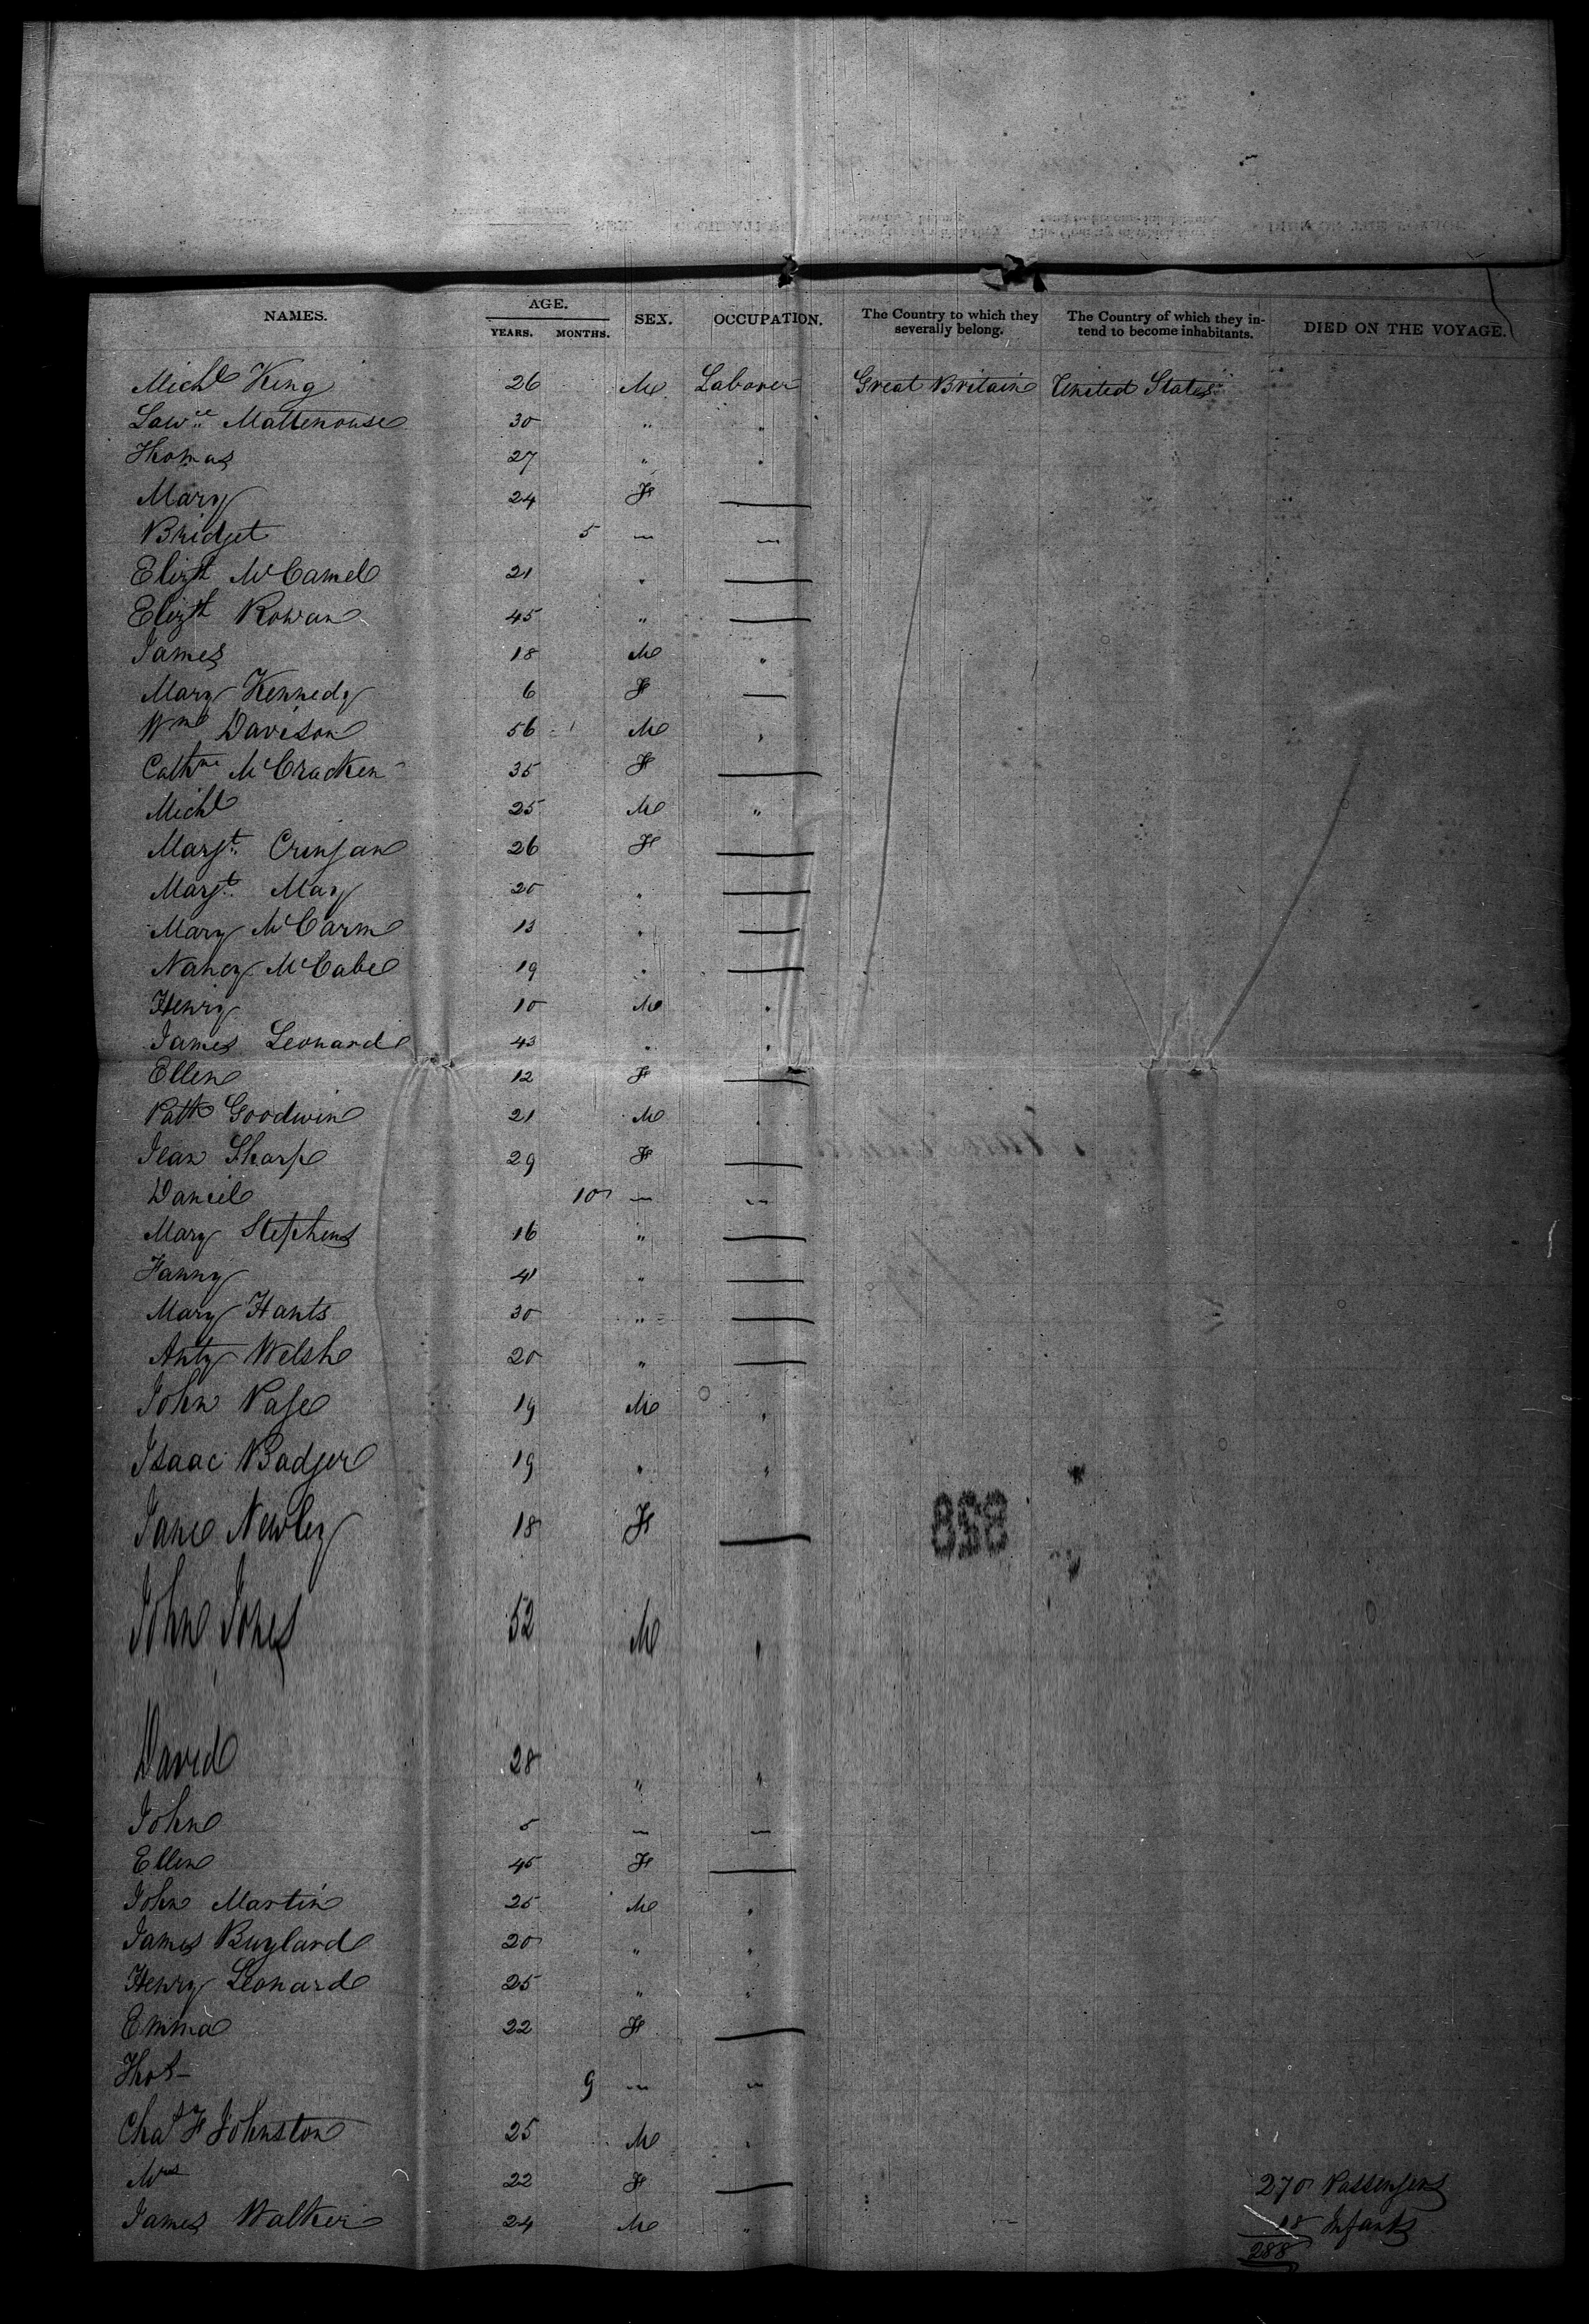 NAMES. AGE. YEARS. MONTHS. SEX. OCCUPATION. The Country to which they severally belong. The Country of which they intend to become inhabitants. DIED ON THE VOYAGE.
Michl King 26 M Laborer Great Britain United States
Lawce Mattenouse 30 " "
Thomas 27 " "
Mary 24 F —
Bridget 5 — —
Elizth McCamel 21 " —
Elizth Rowan 45 " —
James 18 M "
Mary Kennedy 6 F —
Wm Davison 56 M "
Cathne McCracken 35 F —
Michl 25 M "
Margt. 26 F —
Margt. May 20 " —
Mary McCarm 13 " —
Nancy McCabe 19 " —
Henry 10 M "
James Leonard 43 " "
Ellen 12 F —
Patk Goodwin 21 M "
Jean Sharp 29 F —
Daniel 10 — —
Mary Stephens 16 " —
Fanny 41 " —
Mary Hants 30 " —
Anty Welsh 20 " —
John Page 19 M "
Isaac Badger 19 " "
Jane Newley 18 F —
John Jones 52 M "
David 28 " "
John 5 — —
Ellen 45 F —
John Martin 25 M "
James Buglard 20 " "
Henry Leonard 25 " "
Emma 22 F —
Thos 9 — —
Chas F Johnston 25 M "
Mrs 22 F —
James Walker 24 M "
270 Passengers
18 Infants
288